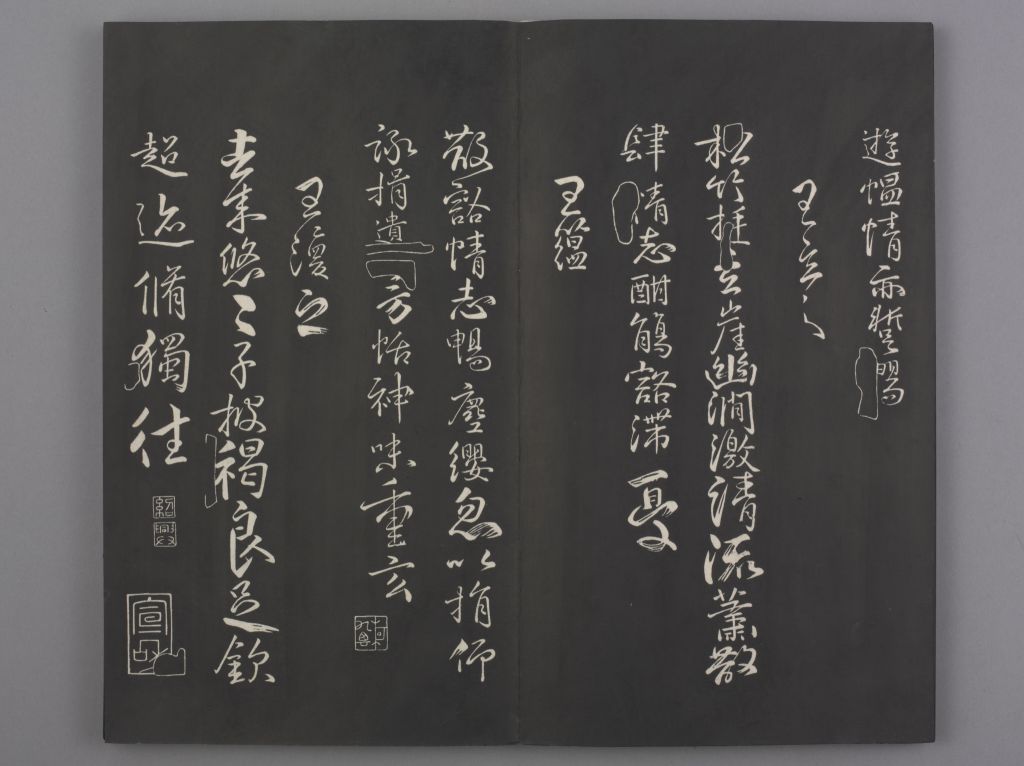 遊愠情亦蹔暢
王玄之
松竹挺岩崖幽澗激清流蕭散
肆情志酣觴豁滯憂
王蘊
散豁情志暢塵纓忽以捐仰
詠挹遺芳怡神味重玄
王渙之
去来悠〻子披褐良足欽
超迹脩獨往
紹興
宣和